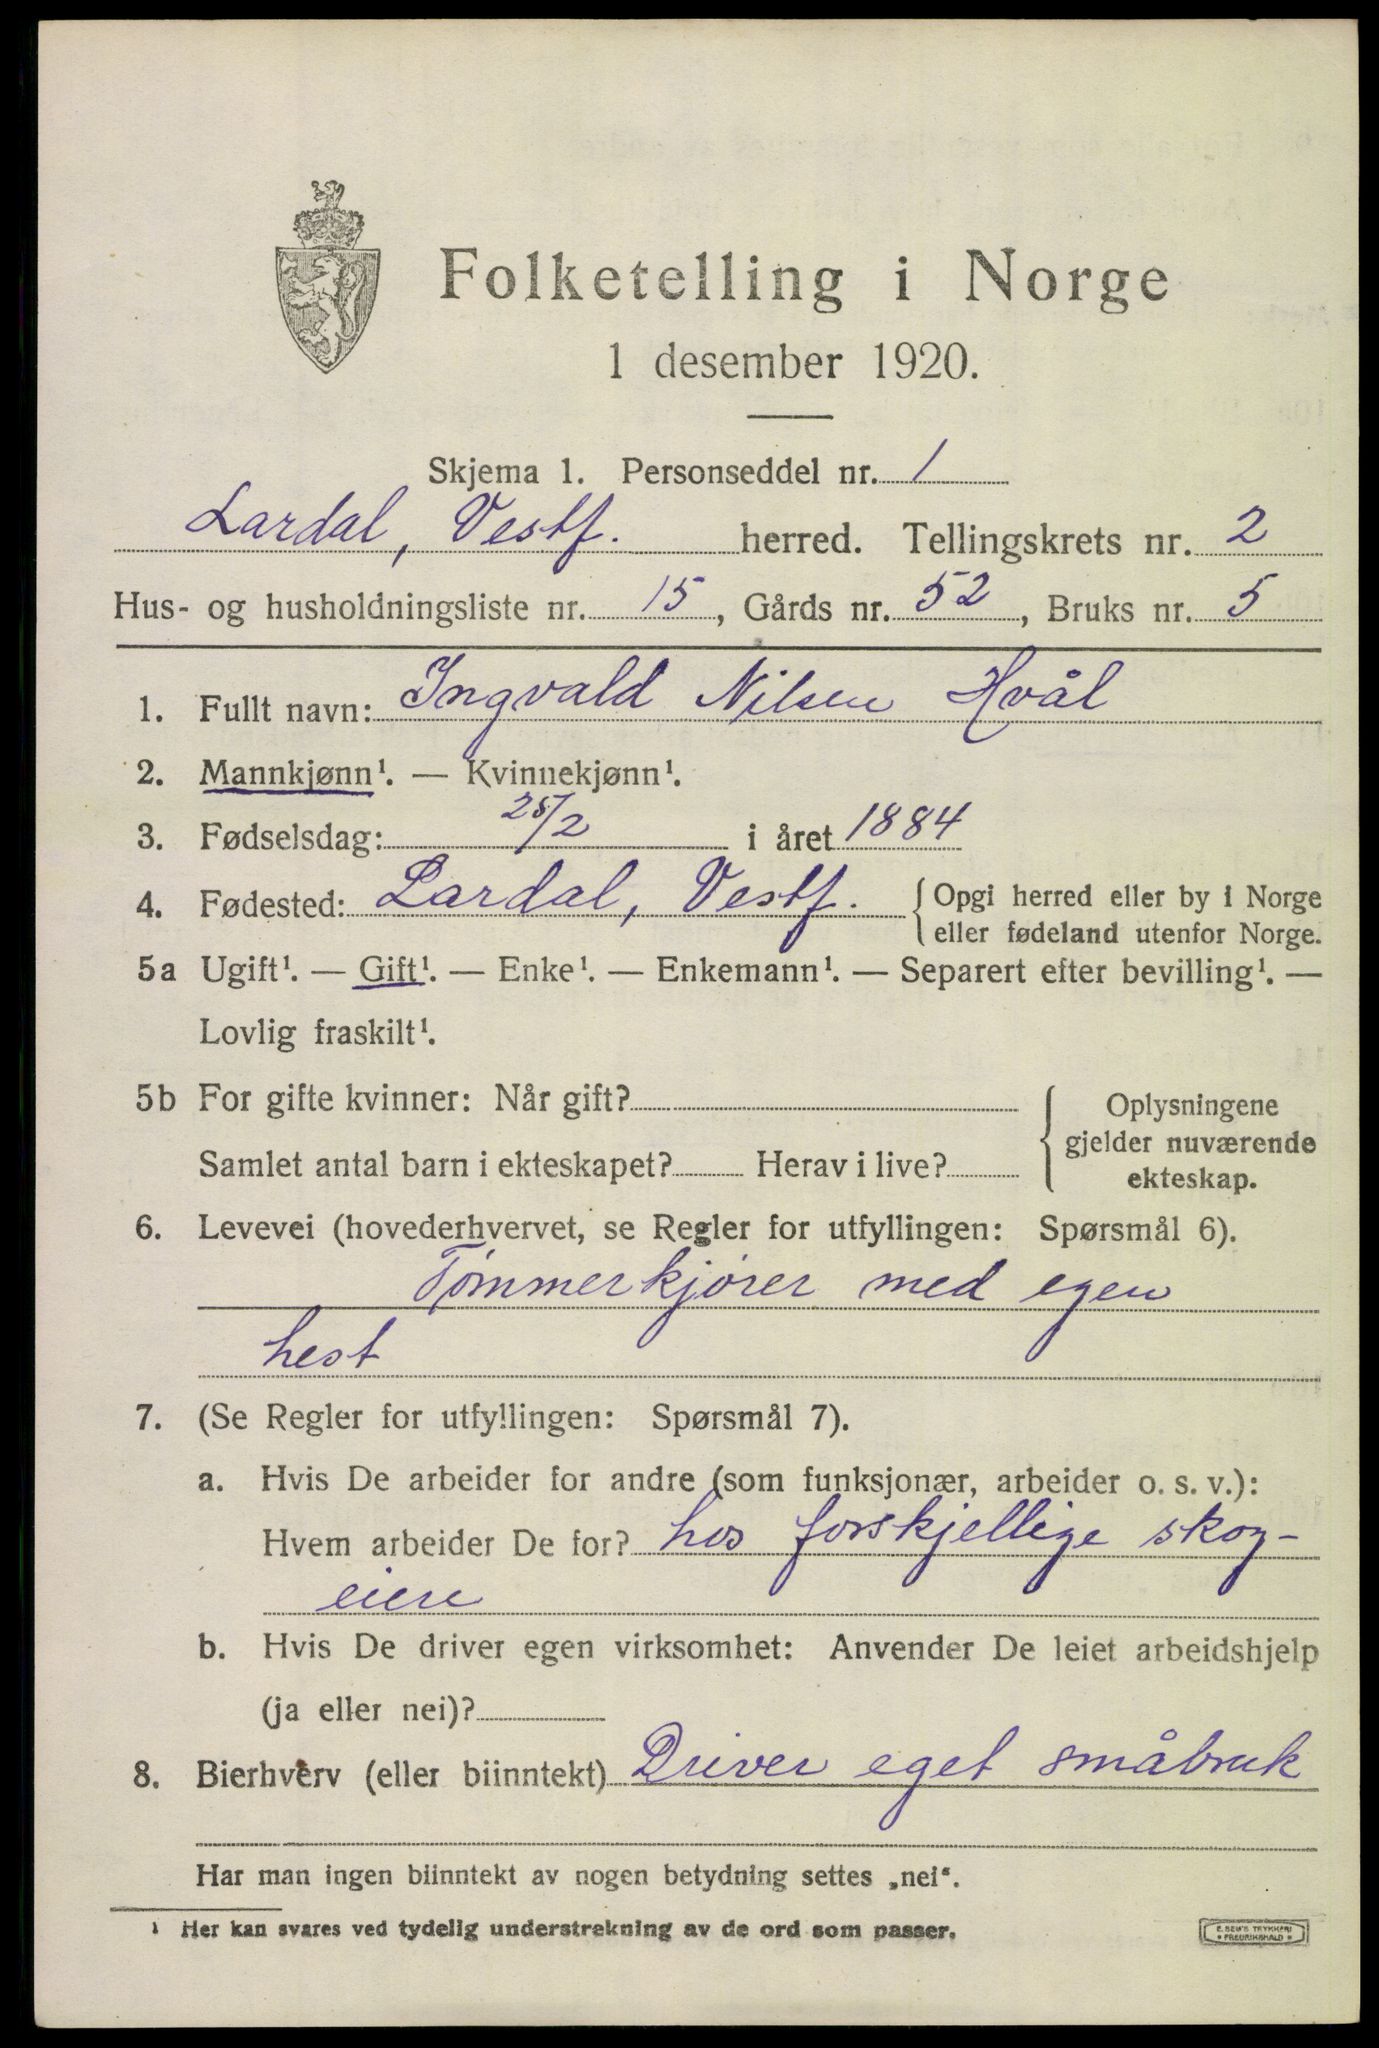 Folketelling i Norge
1 desember 1920.
Skjema 1. Personseddel nr. 1
Lardal, Vestf. herred. Tellingskrets nr. 2
Hus- og husholdningsliste nr. 15, Gårds nr. 52, Bruks nr. 5
1. Fullt navn: Ingvald Nilsen Hvål
2. Mannkjønn¹. — Kvinnekjønn¹.
3. Fødselsdag: 25/2 i året 1884
4. Fødested: Lardal, Vestf. { Opgi herred eller by i Norge
eller fødeland utenfor Norge.
5a Ugift¹. — Gift¹. — Enke¹. — Enkemann¹. — Separert efter bevilling¹. —
Lovlig fraskilt¹.
5b For gifte kvinner: Når gift?
Samlet antal barn i ekteskapet? Herav i live?
Oplysningene
gjelder nuværende
ekteskap.
6. Levevei (hovederhvervet, se Regler for utfyllingen: Spørsmål 6).
Tømmerkjörer med egen
hest
7. (Se Regler for utfyllingen: Spørsmål 7).
a. Hvis De arbeider for andre (som funksjonær, arbeider o. s. v.):
Hvem arbeider De for? hos forskjellige skog-
eiere
b. Hvis De driver egen virksomhet: Anvender De leiet arbeidshjelp
(ja eller nei)?
8. Bierhverv (eller biinntekt) Driver eget småbruk
Har man ingen biinntekt av nogen betydning settes „nei“.
¹ Her kan svares ved tydelig understrekning av de ord som passer.
E. SEM'S TRYKKERI
FREDRIKSHALD